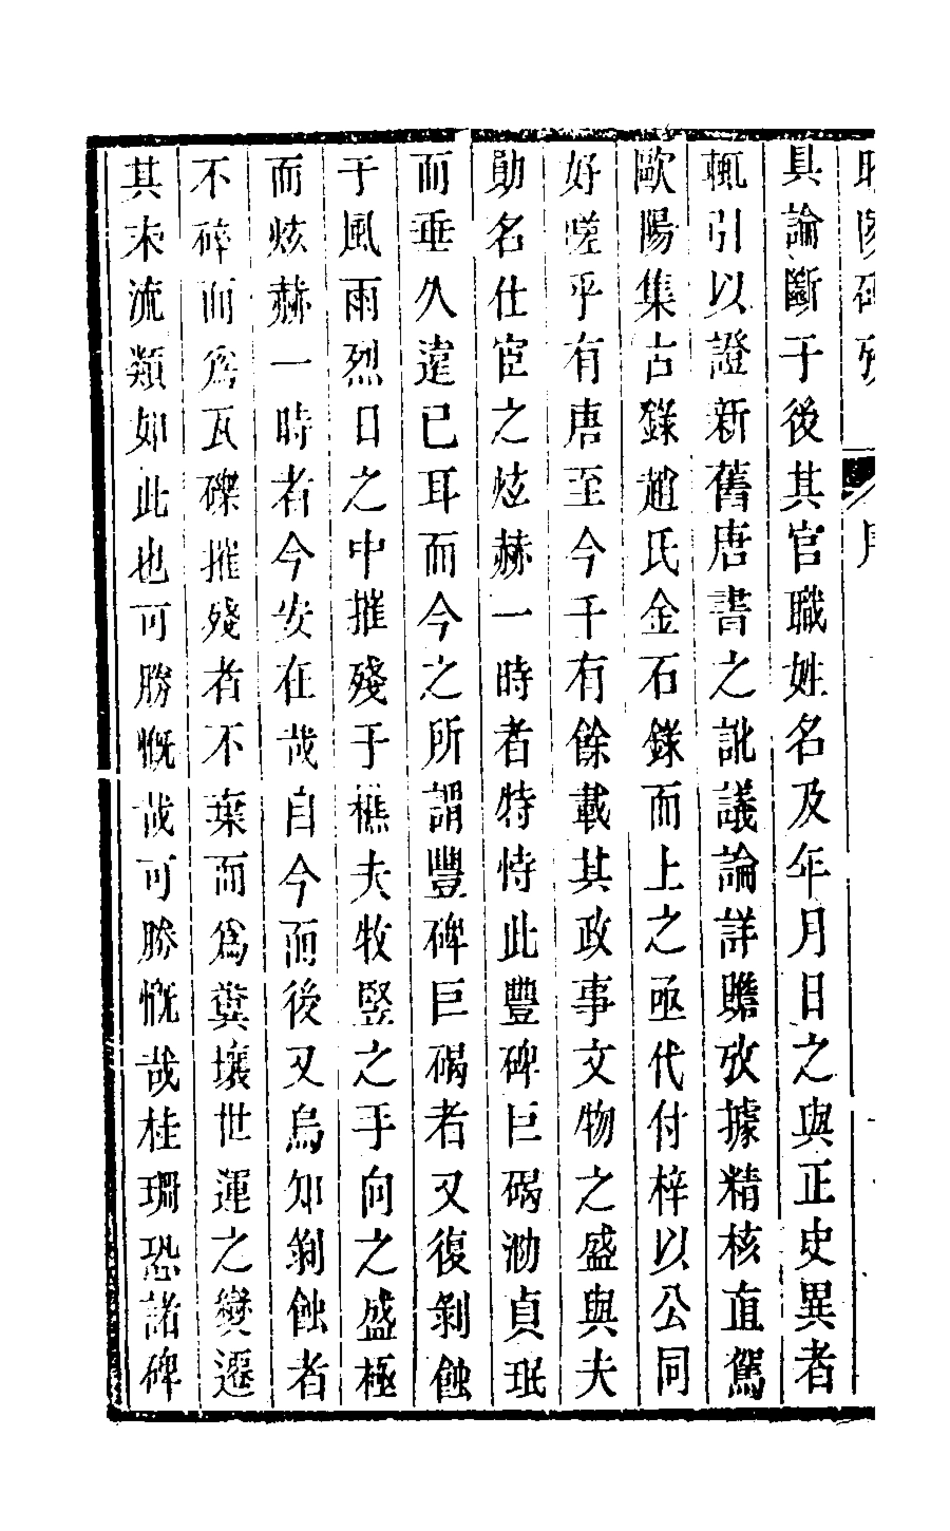 具論斷于後其官職姓名及年月日之與正史異者
輒引以證新舊唐書之訛議論詳贍攷據精核直駕
歐陽集古錄趙氏金石錄而上之亟代付梓以公同
好嗟乎有唐至今千有餘載其政事文物之盛與夫
勛名仕宦之炫赫一時者特恃此豐碑巨碣泐貞珉
而垂久遠已耳而今之所謂豐碑巨碣者又復剝蝕
于風雨烈日之中摧殘于樵夫牧豎之手向之盛極
而炫赫一時者今安在哉自今而後又烏知剝蝕者
不碎而爲瓦礫摧殘者不棄而爲糞壤世運之變遷
其末流類如此也可勝慨哉可勝慨哉桂珊恐諸碑